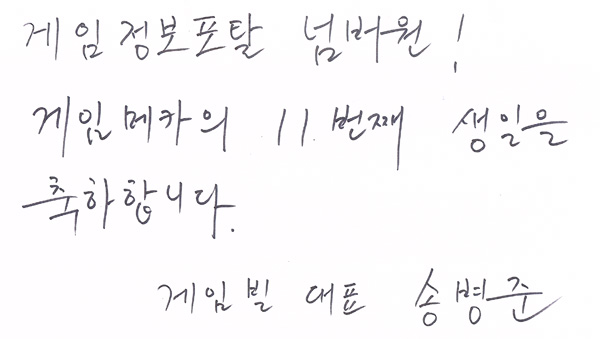 게임정보포탈 넘버원!
게임메카의 11번째 생일을
축하합니다.
게임빌 대표 송병준